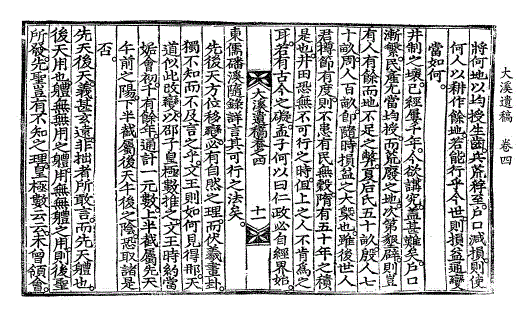 大溪遺稿　卷四
將何地以均授生齒共荒稱至戶口減損則使
何人以耕作餘地若能行乎今世則損益通變
當如何
井制之壞已經屢千年今欲講究蓋甚難矣戶口
漸繁民產尤當均授而荒廢之地次第墾闢則豈
有人有餘而地不足之弊夏后氏五十畝殷人七
十畝周人百畝卽隨時損益之大槩也雖後世人
君撙節有度則不患有民無穀隋有五十年之積
是也井田恐無不可行之時但上之人不肯爲之
耳若有古今之礙孟子何以曰仁政必自經界始
大溪遺稿卷四
十一
東儒磻溪隨錄詳言其可行之法矣
先後天方位移變必有自然之理而伏羲畫卦
獨不知而不及言之乎文王則如何見得那天
道似此改變以邵子皇極數推之文王時約當
姤會初千有餘年通計一元數上半截屬先天
午前之陽下半截屬後天午後之陰恐取諸是
否
先天後天義甚玄遠非拙者所敢言而先天體也
後天用也體無無用之體用無無體之用則後聖
所發先聖豈有不知之理皇極數云云未曾領會